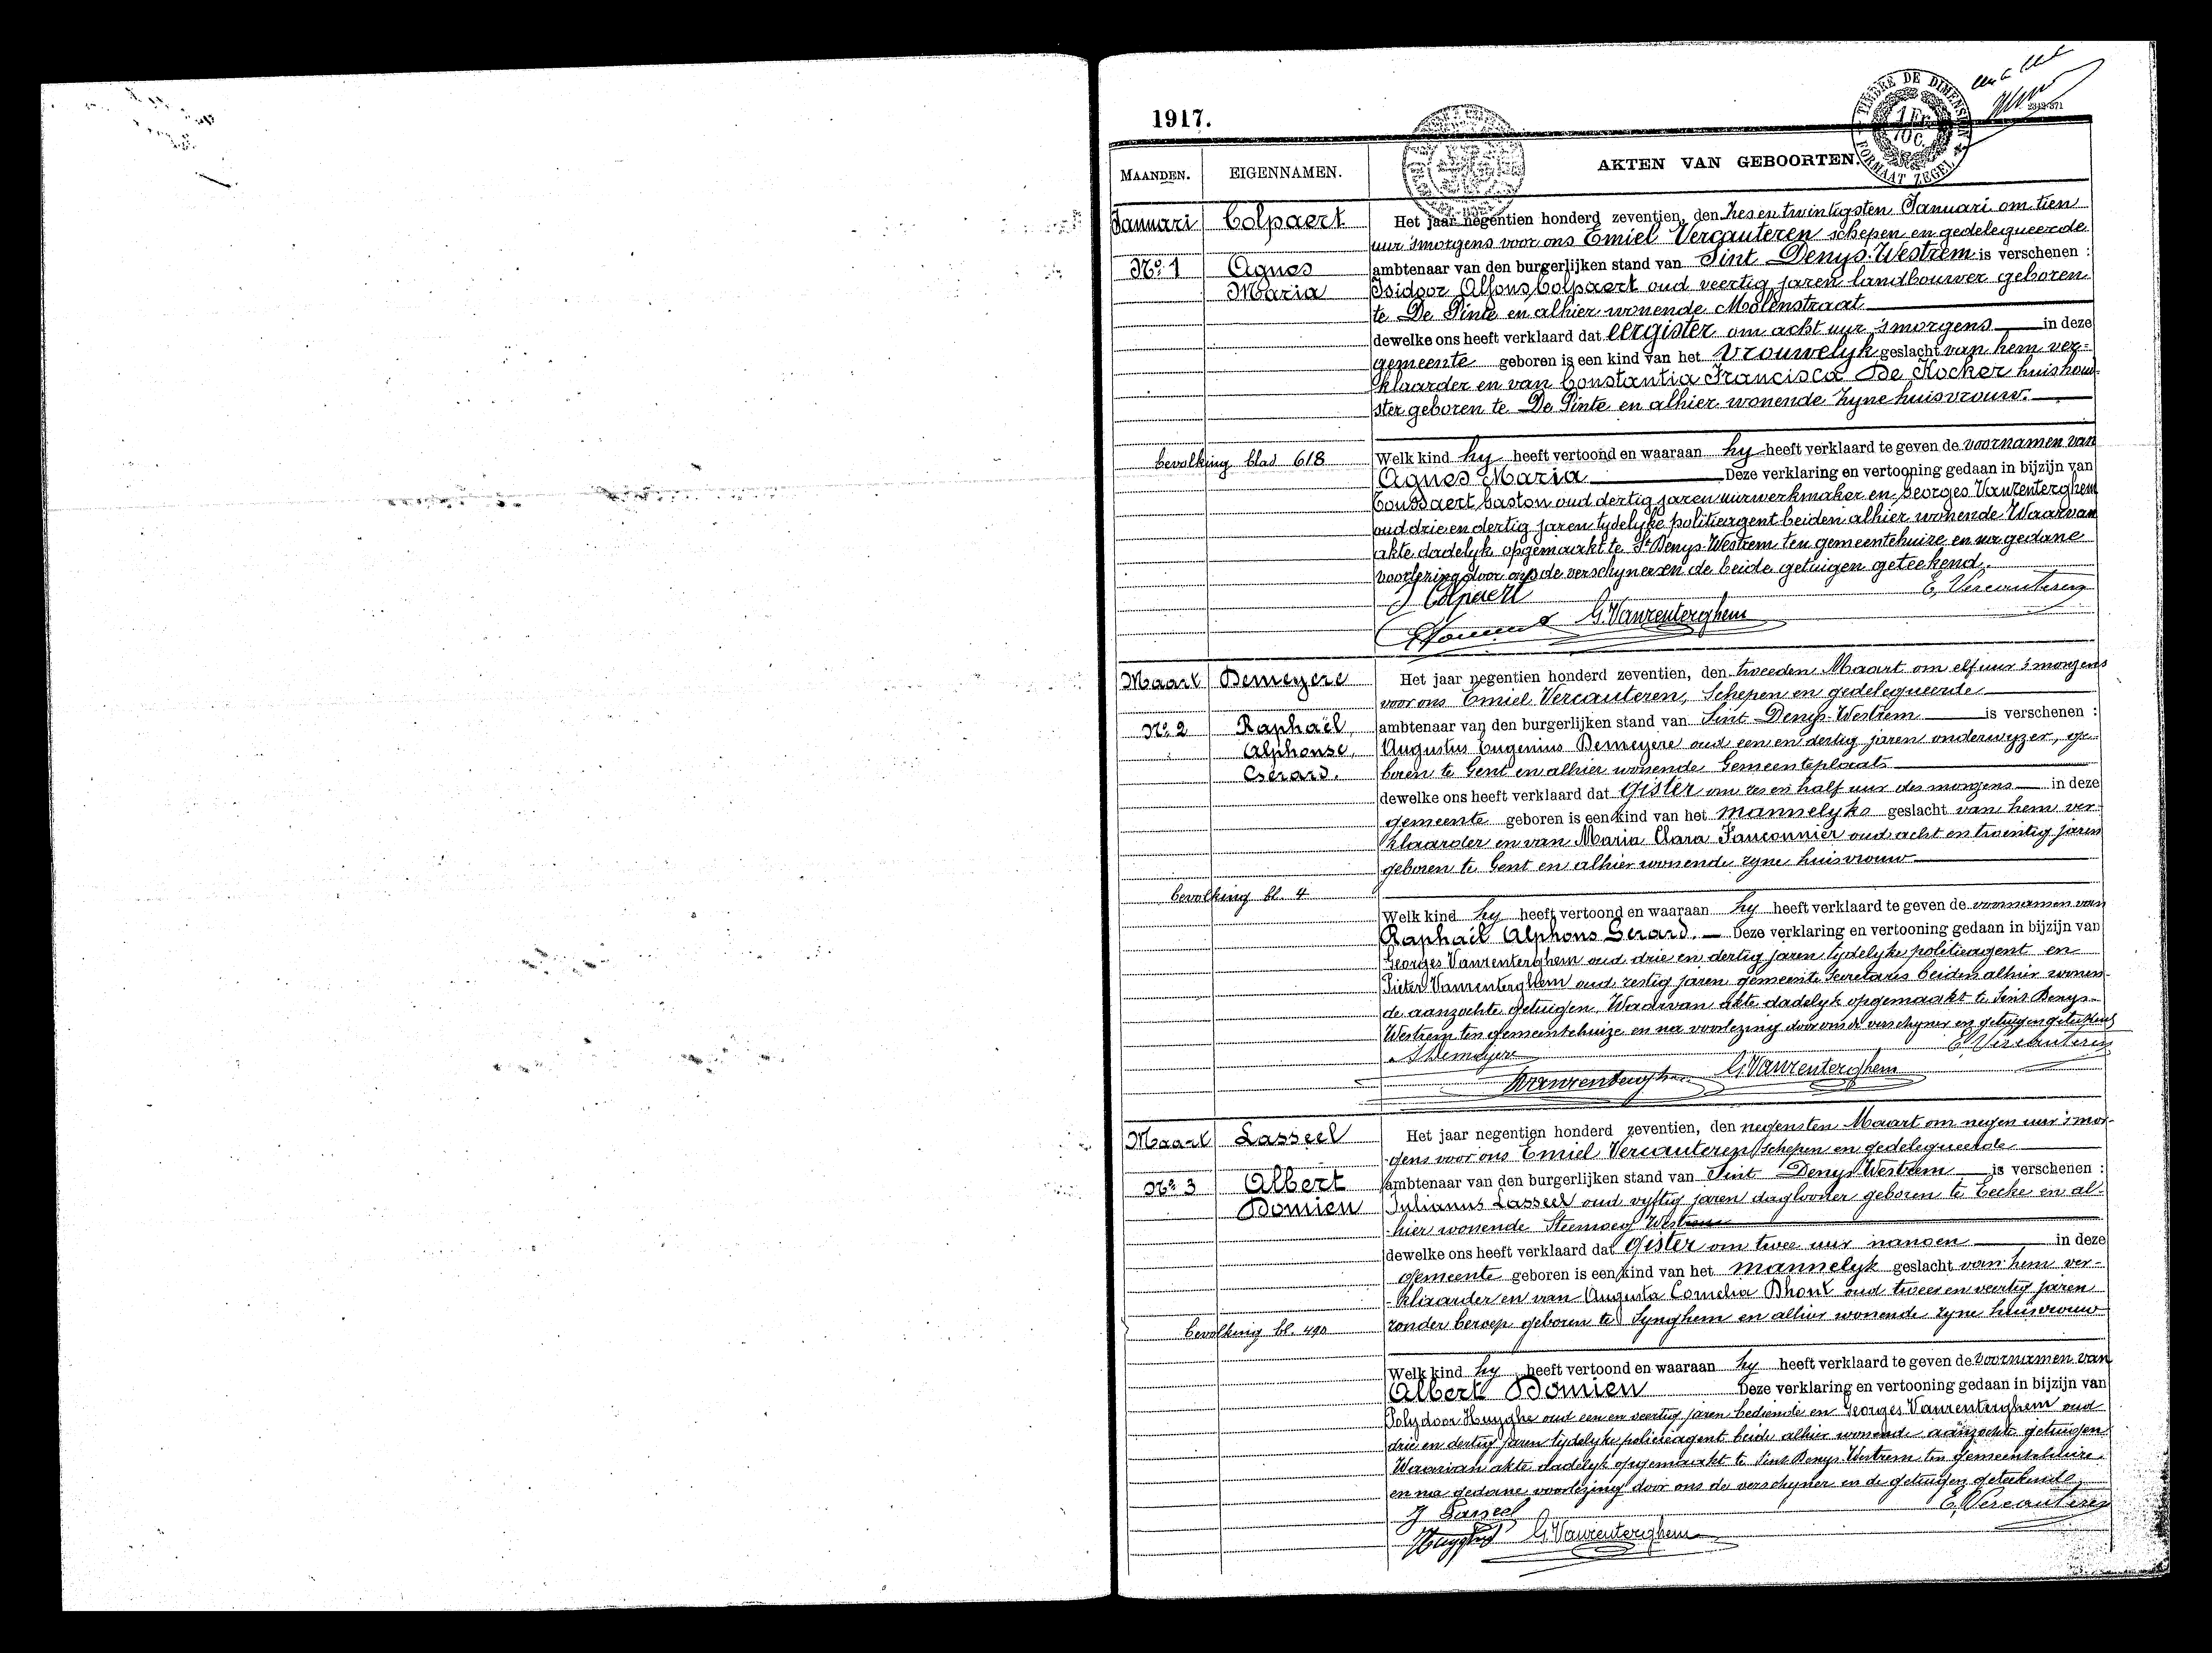 1917.
TIMBRE DE DIMENSION
1 Fr. 10 C.
FORMAAT ZEGEL
MAANDEN. EIGENNAMEN. AKTEN VAN GEBOORTEN.
Januari Colpaert Het jaar negentien honderd zeventien, den zes en twintigsten Januari om tien
uur 'smorgens voor ons Emiel Vercauteren schepen en gedelegueerde
No 1 Agnes ambtenaar van den burgerlijken stand van Sint Denys-Westrem is verschenen :
Maria Isidoor Alfons Colpaert oud veertig jaren landbouwer geboren
te De Pinte en alhier wonende Molenstraat
dewelke ons heeft verklaard dat eergister om acht uur 'smorgens in deze
gemeente geboren is een kind van het vrouwelyk geslacht van hem ver=
klaarder en van Constantia Francisca De Kocker huishoud-
ster geboren te De Pinte en alhier wonende zyne huisvrouw.
bevolking blad 618 Welk kind hy heeft vertoond en waaraan hy heeft verklaard te geven de voornamen van
Agnes Maria Deze verklaring en vertooning gedaan in bijzijn van
Goussaert Gaston oud dertig jaren uurwerkmaker en Georges Vanrenterghem
oud drie en dertig jaren tydelyke politieagent beiden alhier wonende Waarvan
akte dadelyk opgemaakt te St Denys-Westrem ten gemeentehuize en na gedane
voorlezing door ons de verschyner en de beide getuigen geteekend.
J Colpaert E, Vercauteren
G. Vanrenterghem
Maart Demeyere Het jaar negentien honderd zeventien, den tweeden Maart om elf uur 's morgens
voor ons Emiel Vercauteren, Schepen en gedelegueerde
No 2 Raphaël, ambtenaar van den burgerlijken stand van Sint Denys-Westrem is verschenen :
Alphonse, Augustus Eugenius Demeyere oud een en dertig jaren onderwyzer, ge-
Gerard. boren te Gent en alhier wonende Gemeenteplaats
dewelke ons heeft verklaard dat gister om zes en half uur des morgens in deze
gemeente geboren is een kind van het mannelyke geslacht van hem ver-
klaarder en van Maria Clara Fauconnier oud acht en twintig jaren
geboren te Gent en alhier wonende zyne huisvrouw
bevolking bl. 4
Welk kind hy heeft vertoond en waaraan hy heeft verklaard te geven de voornamen van
Raphaël Alphons Gerard. Deze verklaring en vertooning gedaan in bijzijn van
Georges Vanrenterghem oud drie en dertig jaren tydelyke politieagent en
Pieter Vanrenterghem oud zestig jaren gemeente Secretaris beiden alhier wonen-
de aanzochte getuigen. Waarvan akte dadelyk opgemaakt te Sint Denys-
Westrem ten gemeentehuize en na voorlezing door ons de verschyner en getuigen geteekend
A Demeyere E, Vercauteren
Vanrenterghem G. Vanrenterghem
Maart Lasseel Het jaar negentien honderd zeventien, den negensten Maart om negen uur 'smor-
gens voor ons Emiel Vercauteren schepen en gedelegueerde
No 3 Albert ambtenaar van den burgerlijken stand van Sint Denys Westrem is verschenen :
Domien Julianus Lasseel oud vyftig jaren daglooner geboren te Eecke en al-
hier wonende Steenweg
dewelke ons heeft verklaard dat gister om twee uur nanoen in deze
gemeente geboren is een kind van het mannelyk geslacht van hem ver-
klaarder en van Augusta Cornelia Dhont oud twee en veertig jaren
bevolking bl. 490 zonder beroep geboren te Synghem en alhier wonende zyne huisvrouw
Welk kind hy heeft vertoond en waaraan hy heeft verklaard te geven de voornamen van
Albert Domien Deze verklaring en vertooning gedaan in bijzijn van
Polydoor Huyghe oud een en veertig jaren bediende en Georges Vanrenterghem oud
drie en dertig jaren tydelyke policieagent beide alhier wonend aanzocht getuigen
Waarvan akte dadelyk opgemaakt te Sint Denys Westrem ten gemeentehuize
en na gedane voorlezing door ons de verschyner en de getuigen geteekend
J Lasseel E, Vercauteren
Huyghe G. Vanrenterghem